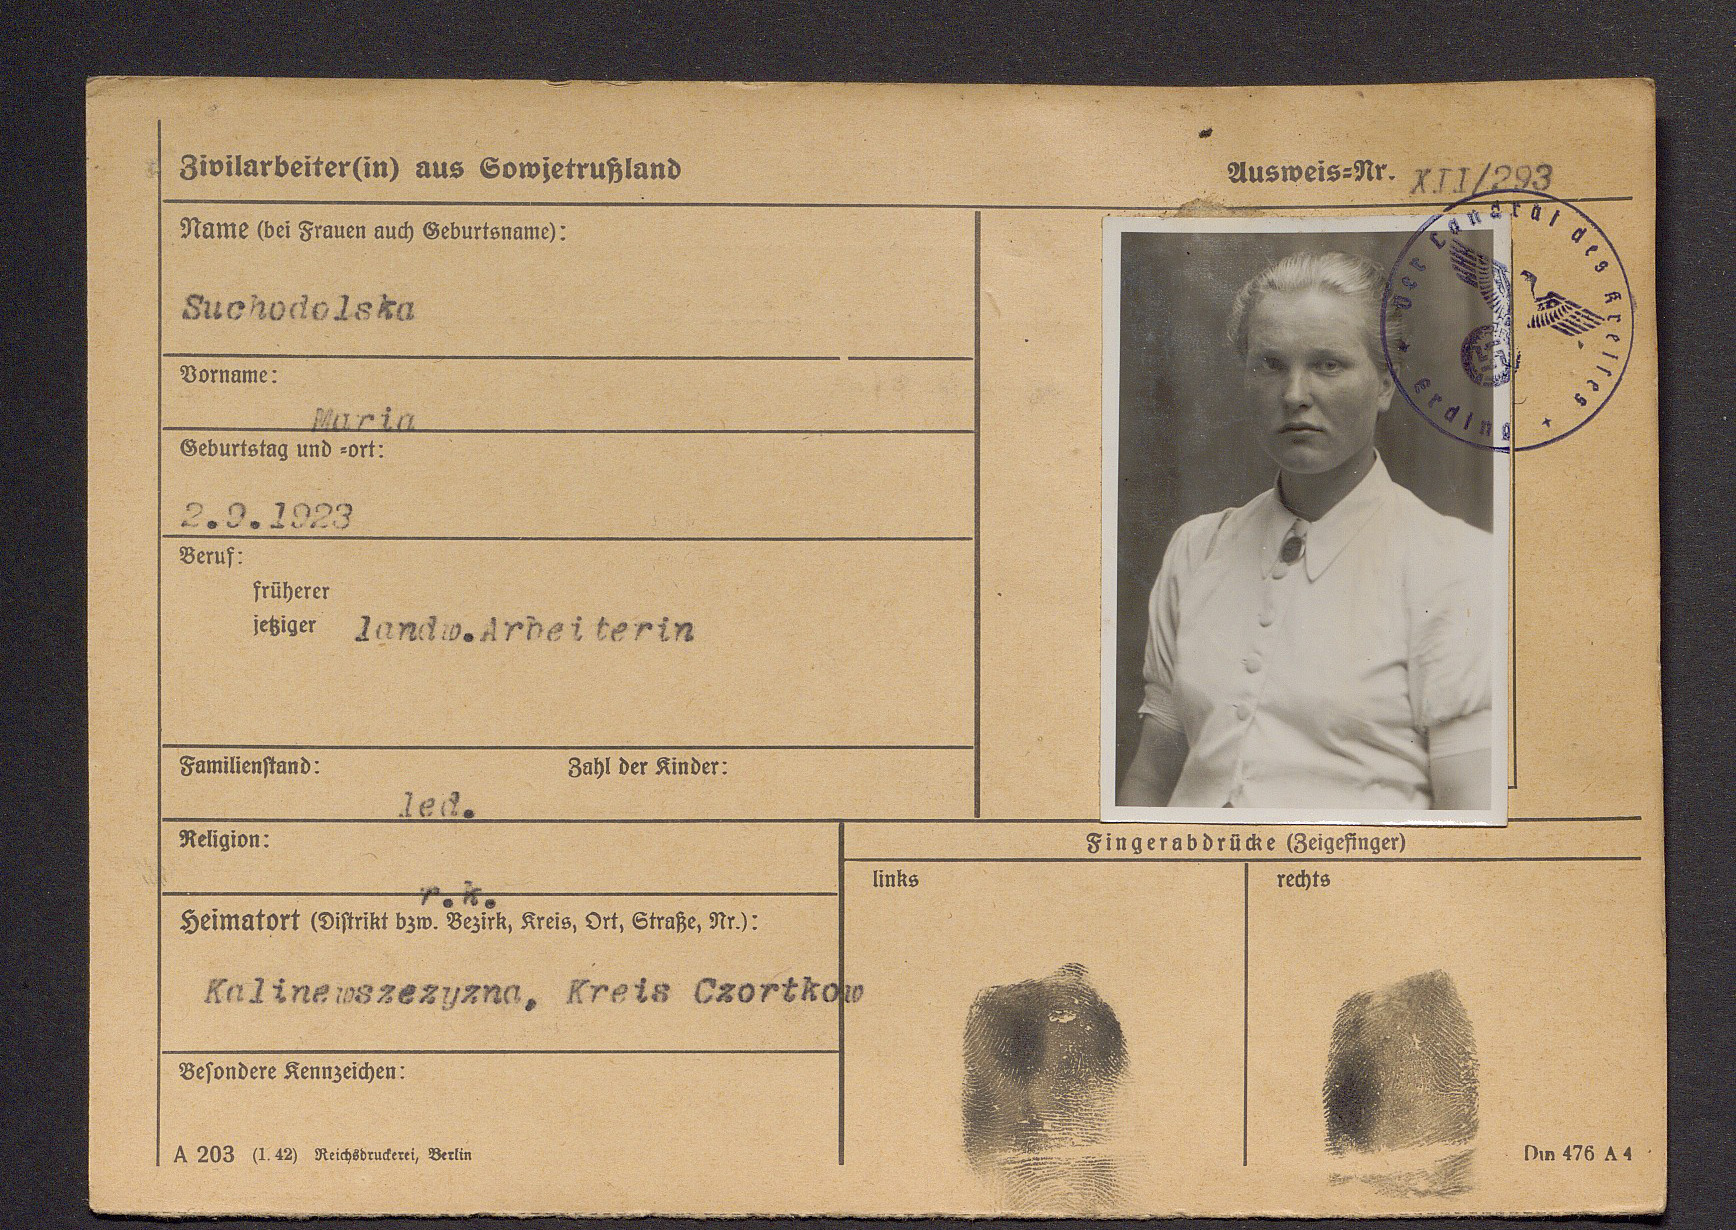 Zivilarbeiter(in) aus Sowjetrußland
Ausweis=Nr. XII/293
Name (bei Frauen auch Geburtsname):
Suchodolska
Vorname:
Maria
Geburtstag und =ort:
2.9.1923
Beruf:
früherer
jetziger landw.Arbeiterin
Familienstand: Zahl der Kinder:
led.
Religion:
r.k.
Heimatort (Distrikt bzw. Bezirk, Kreis, Ort, Straße, Nr.):
Kalinewszezyzna, Kreis Czortkow
Besondere Kennzeichen:
A 203 (1. 42) Reichsdruckerei, Berlin
Der Landrat des Kreises
Erding
Fingerabdrücke (Zeigefinger)
links
rechts
Din 476 A 4